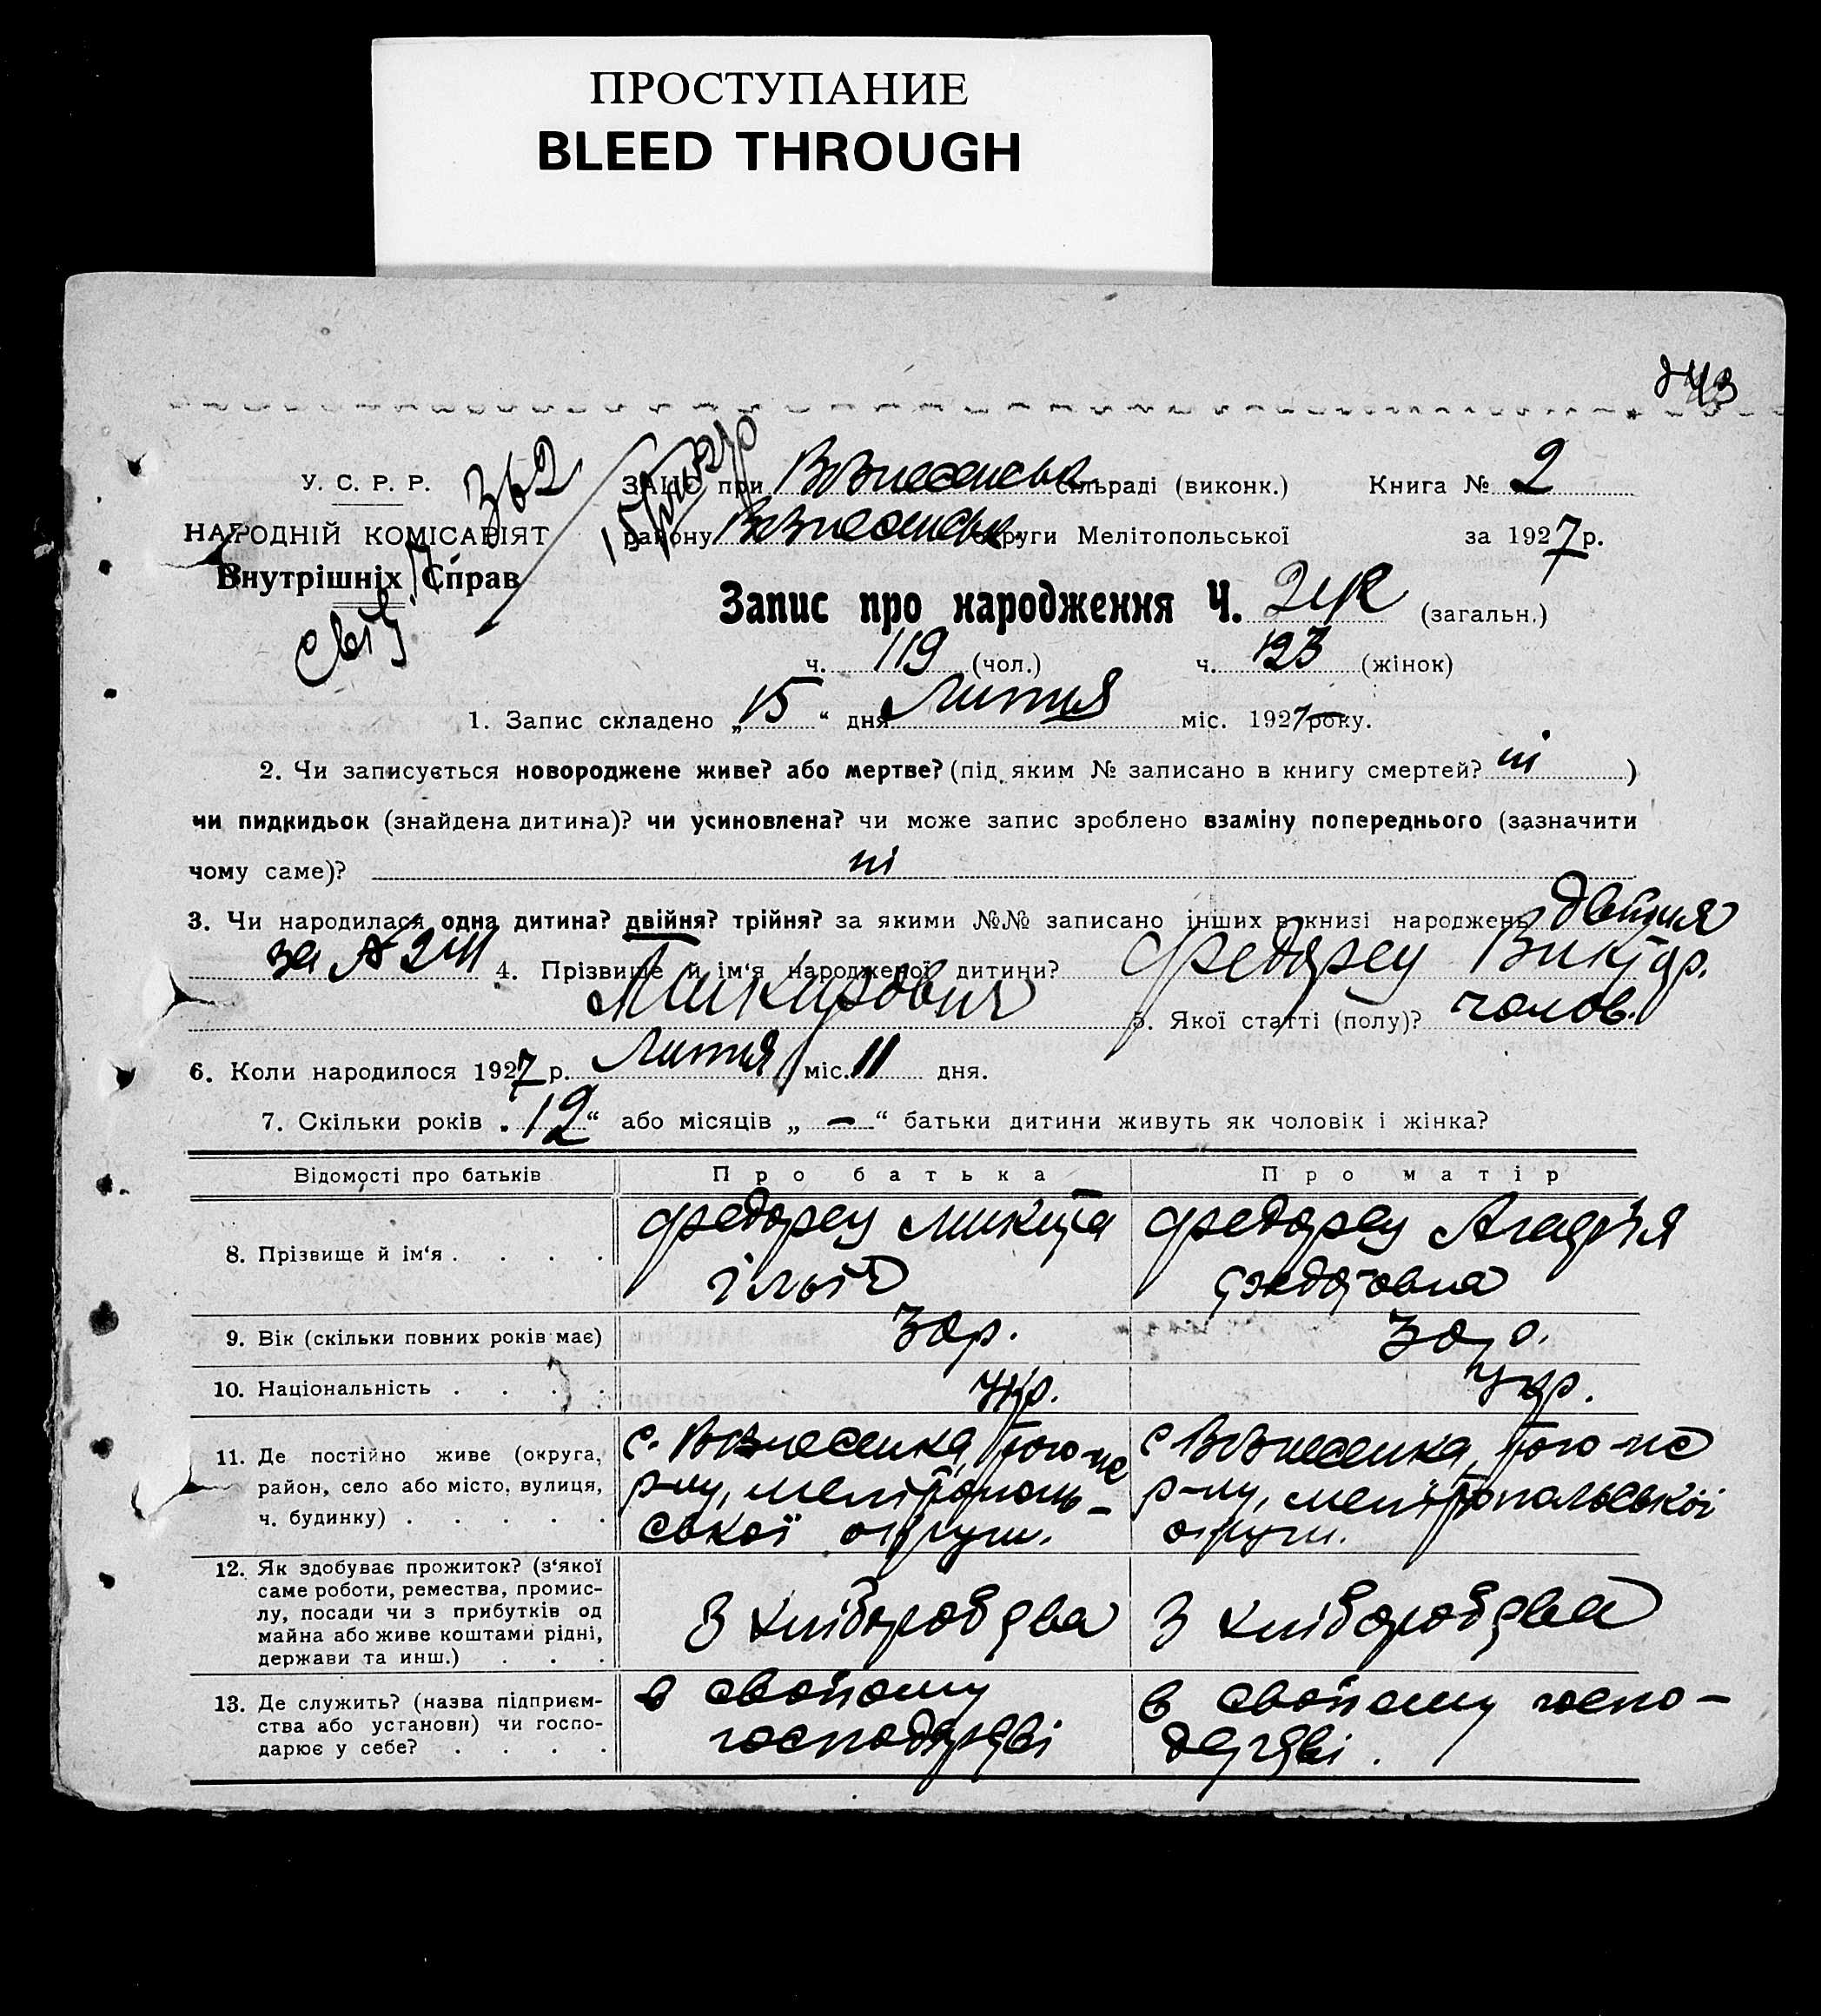 ПРОСТУПАНИЕ
BLEED THROUGH
У. С. Р. Р.
НАРОДНІЙ КОМІСАРІЯТ
Внутрішніх Справ
362
ЗАПС при Вознесенськ. сільраді (виконк.) Книга № 2
району Вознесенськ. округи Мелітопольської за 1927 р.
Запис про народження Ч. 242 (загальн.)
ч. 119 (чол.) ч. 123 (жінок)
1. Запис складено „15“ дня Лютня міс. 1927 року.
2. Чи записується новороджене живе? або мертве? (під яким № записано в книгу смертей? ні )
чи пидкидьок (знайдена дитина)? чи усиновлена? чи може запис зроблено взаміну попереднього (зазначити
чому саме)? ні
3. Чи народилася одна дитина? двійня? трійня? за якими №№ записано інших в книзі народжень двійня
за № 241 4. Прізвище й ім'я народженої дитини? Федорец Виктор.
Микитович 5. Якої статті (полу)? чолов.
6. Коли народилося 1927 р. Лютня міс. 11 дня.
7. Скільки років „12“ або місяців „ — “ батьки дитини живуть як чоловік і жінка?
Відомості про батьків Про батька Про матір
8. Прізвище й ім'я . . . . Федорец Микита Федорец Агафія
Ілліч Федотовна
9. Вік (скільки повних років має) 30 р. 30 р.
10. Національність . . . . Укр. Укр.
11. Де постійно живе (округа, с. Вознесенка, того-же с Вознесенка, того-же
район, село або місто, вулиця, р-ну, мелітополь- р-ну, мелітопольської
ч. будинку) . . . . . ської округи. округи.
12. Як здобуває прожиток? (з'якої
саме роботи, ремества, промис-
лу, посади чи з прибутків од З хліборобства З хліборобства
майна або живе коштами рідні,
держави та инш.) . . .
13. Де служить? (назва підприєм- в своїому в своїому госпо-
ства або установи) чи госпо- господарстві дарстві.
дарює у себе? . . . .